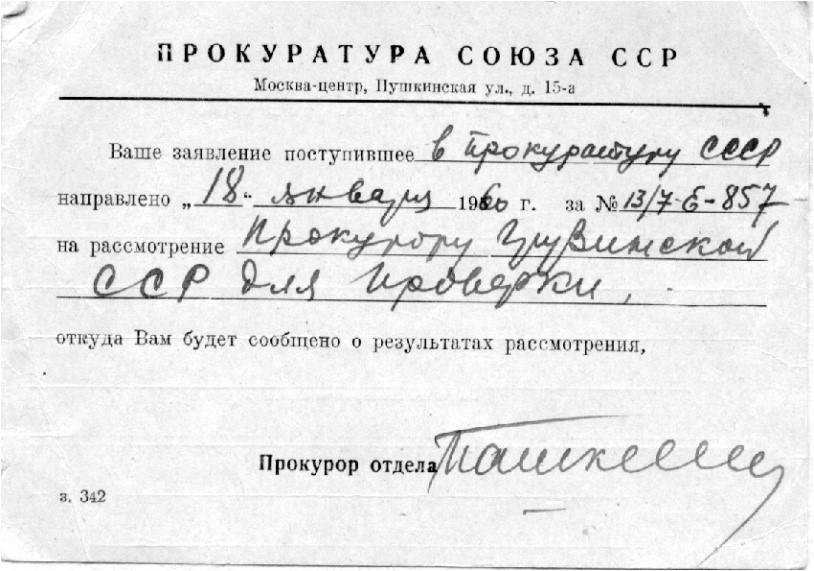 ПРОКУРАТУРА СОЮЗА ССР
Москва-центр, Пушкинская ул., д. 15-а
Ваше заявление поступившее в Прокуратуру СССР
направлено „18" января 1960 г. за № 13/7-Е-857
на рассмотрение Прокурору Грузинской
ССР для проверки,
откуда Вам будет сообщено о результатах рассмотрения,
Прокурор отдела
з. 342